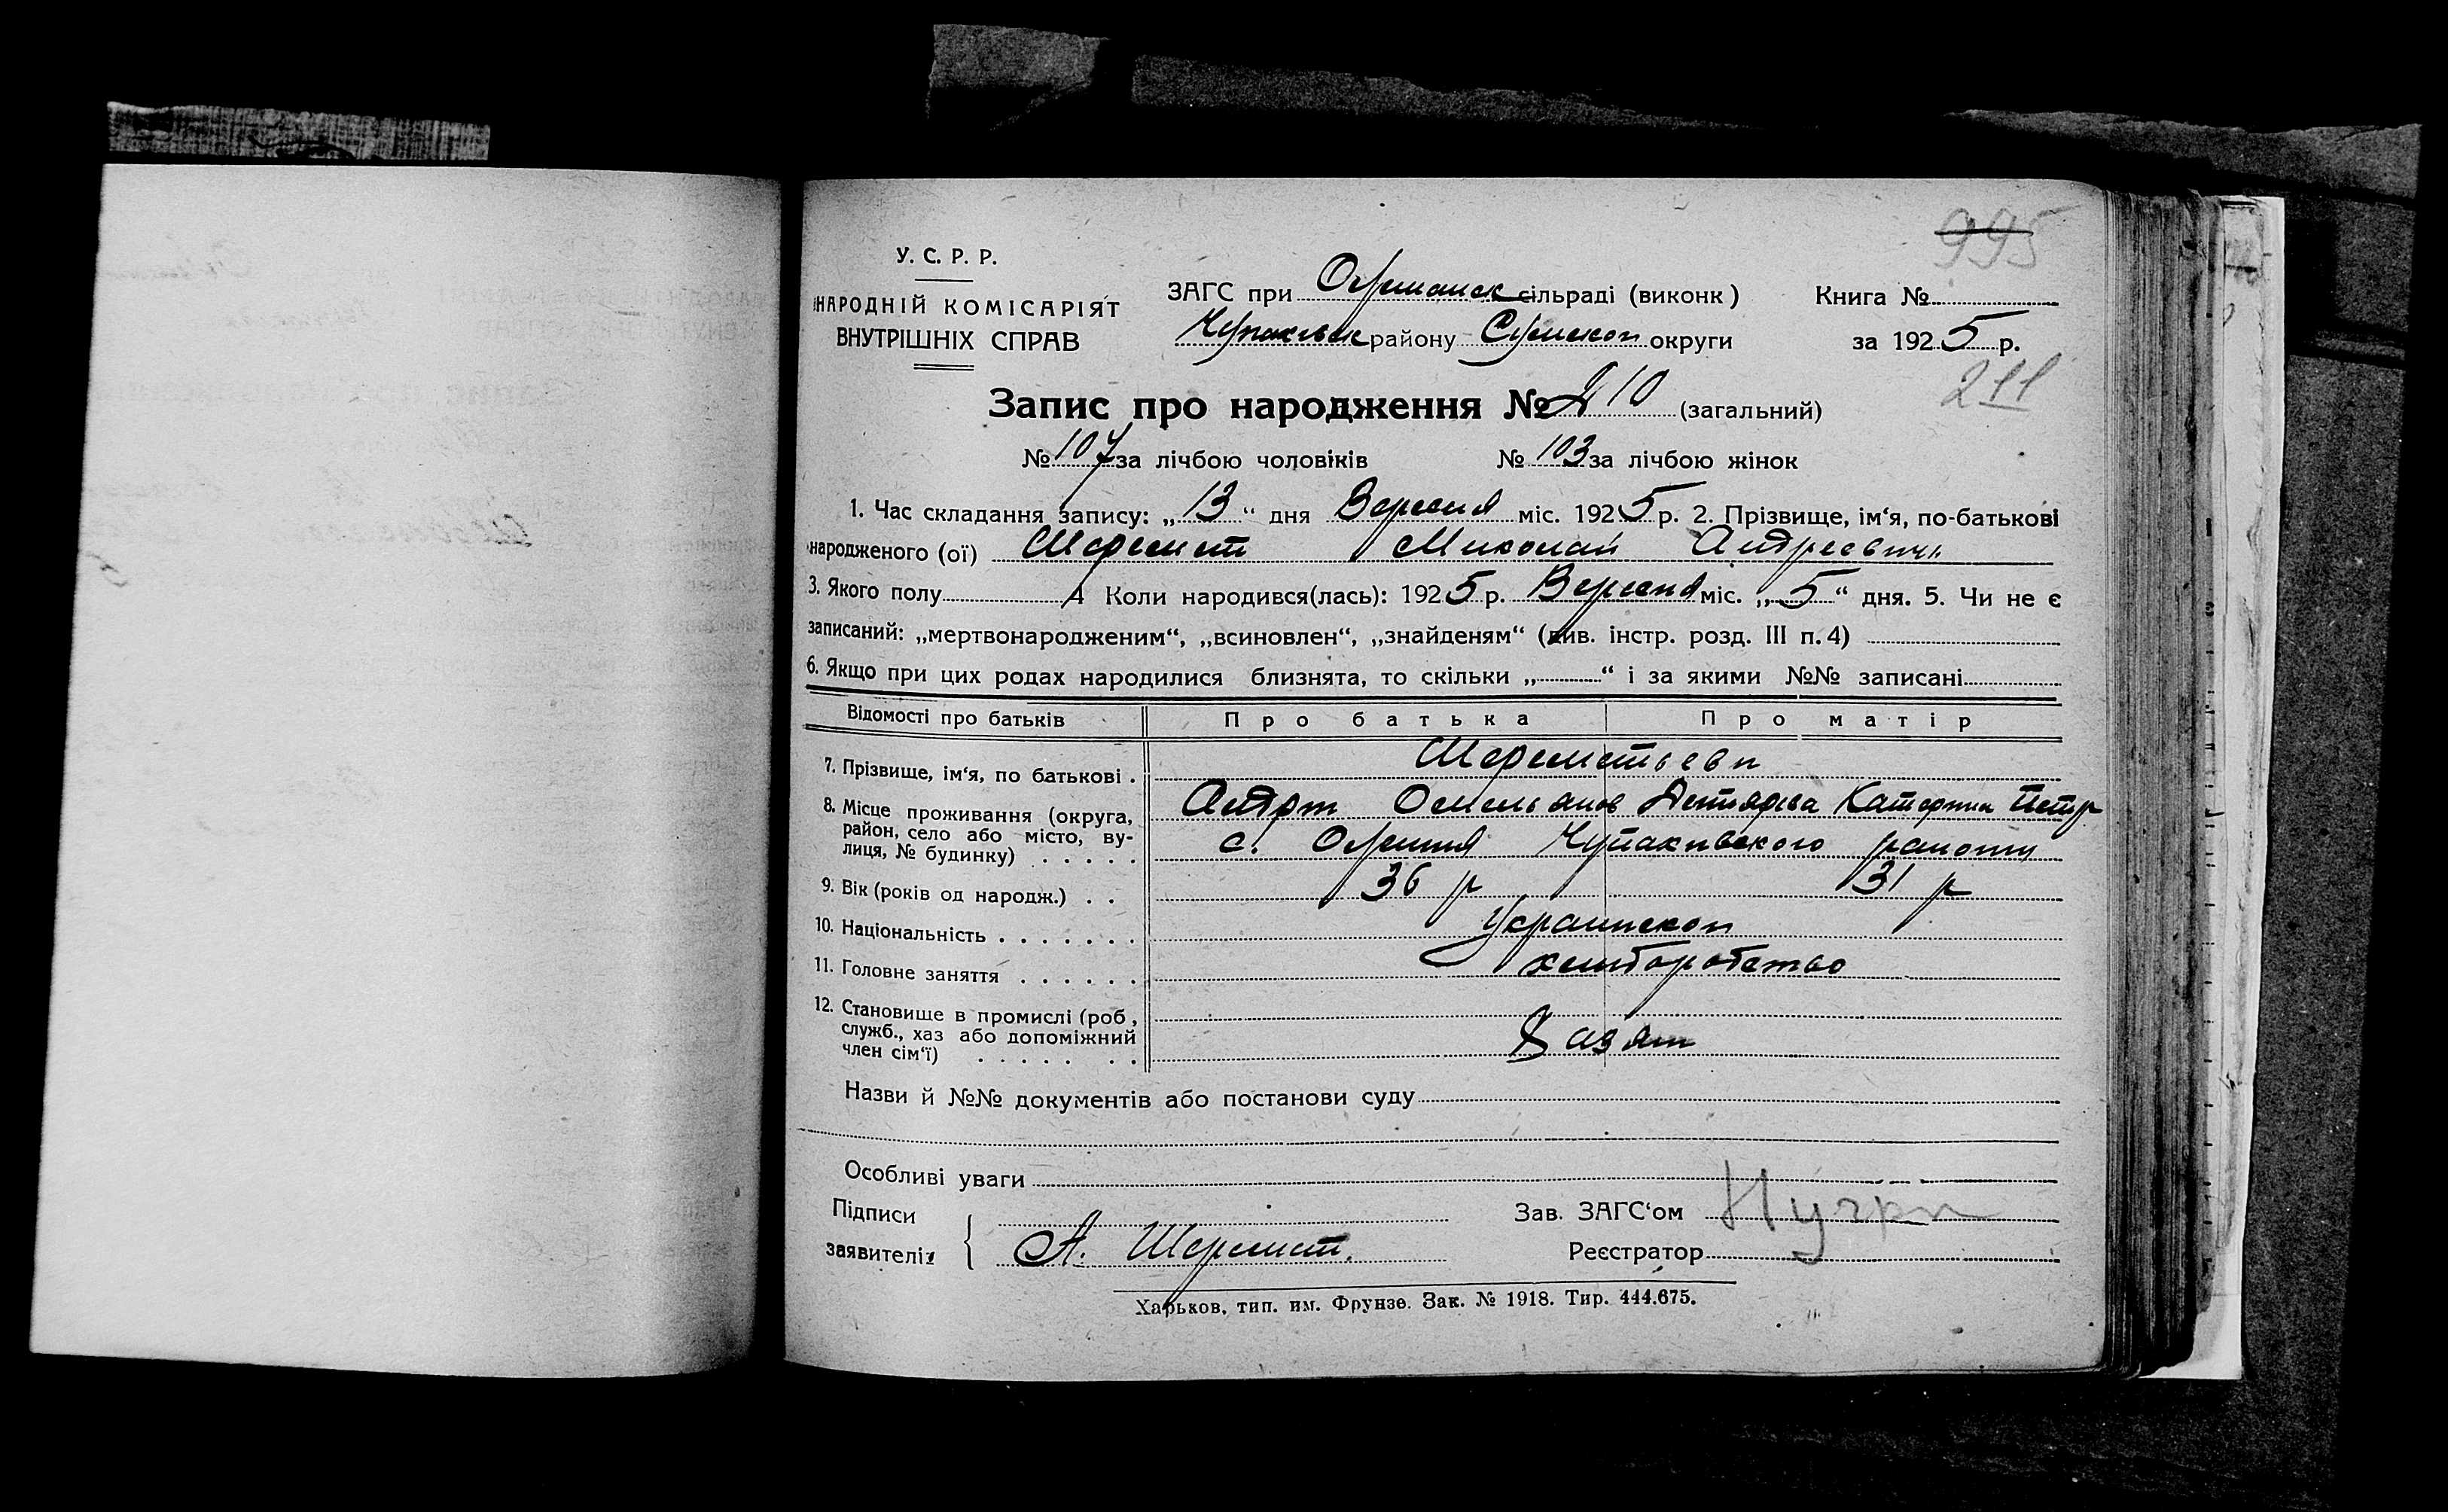 995
У. С. Р. Р.
НАРОДНІЙ КОМІСАРІЯТ
ВНУТРІШНІХ СПРАВ
ЗАГС при сільраді (виконк)
Чупахівськ району Сумскоп округи
Книга №
за 1925 р.
211
Запис про народження № 210 (загальний)
№ 107 за лічбою чоловіків № 103 за лічбою жінок
1. Час складання запису: „13“ дня Вересня міс. 1925 р. 2. Прізвище, ім‘я, по-батькові
народженого (ої) Шеремет Миколай Андреевич
3. Якого полу 4 Коли народився(лась): 1925 р. Вересня міс. „5“ дня. 5. Чи не є
записаний: „мертвонародженим“, „всиновлен“, „знайденям“ (див. інстр. розд. III п. 4)
6. Якщо при цих родах народилися близнята, то скільки „ “ і за якими №№ записані
Відомості про батьків Про батька Про матір
7. Прізвище, ім‘я, по батькові . Шереметьеви
8. Місце проживання (округа, район, село або місто, вулиця, № будинку) . . . . .
Омельянов Катерина Петр
с. Чупахивского району
9. Вік (років од народж.) . . 36 р 31 р
10. Національність . . . . . . . Украинскоп
11. Головне заняття . . . . . . хлиборобство
12. Становище в промислі (роб, служб., хаз або допоміжний член сім‘ї) . . . . . . .
Хазят
Назви й №№ документів або постанови суду
Особливі уваги
Підписи
заявителів { А. Шеремет.
Зав. ЗАГС‘ом
Реєстратор
Харьков, тип. им. Фрунзе. Зак. № 1918. Тир. 444.675.